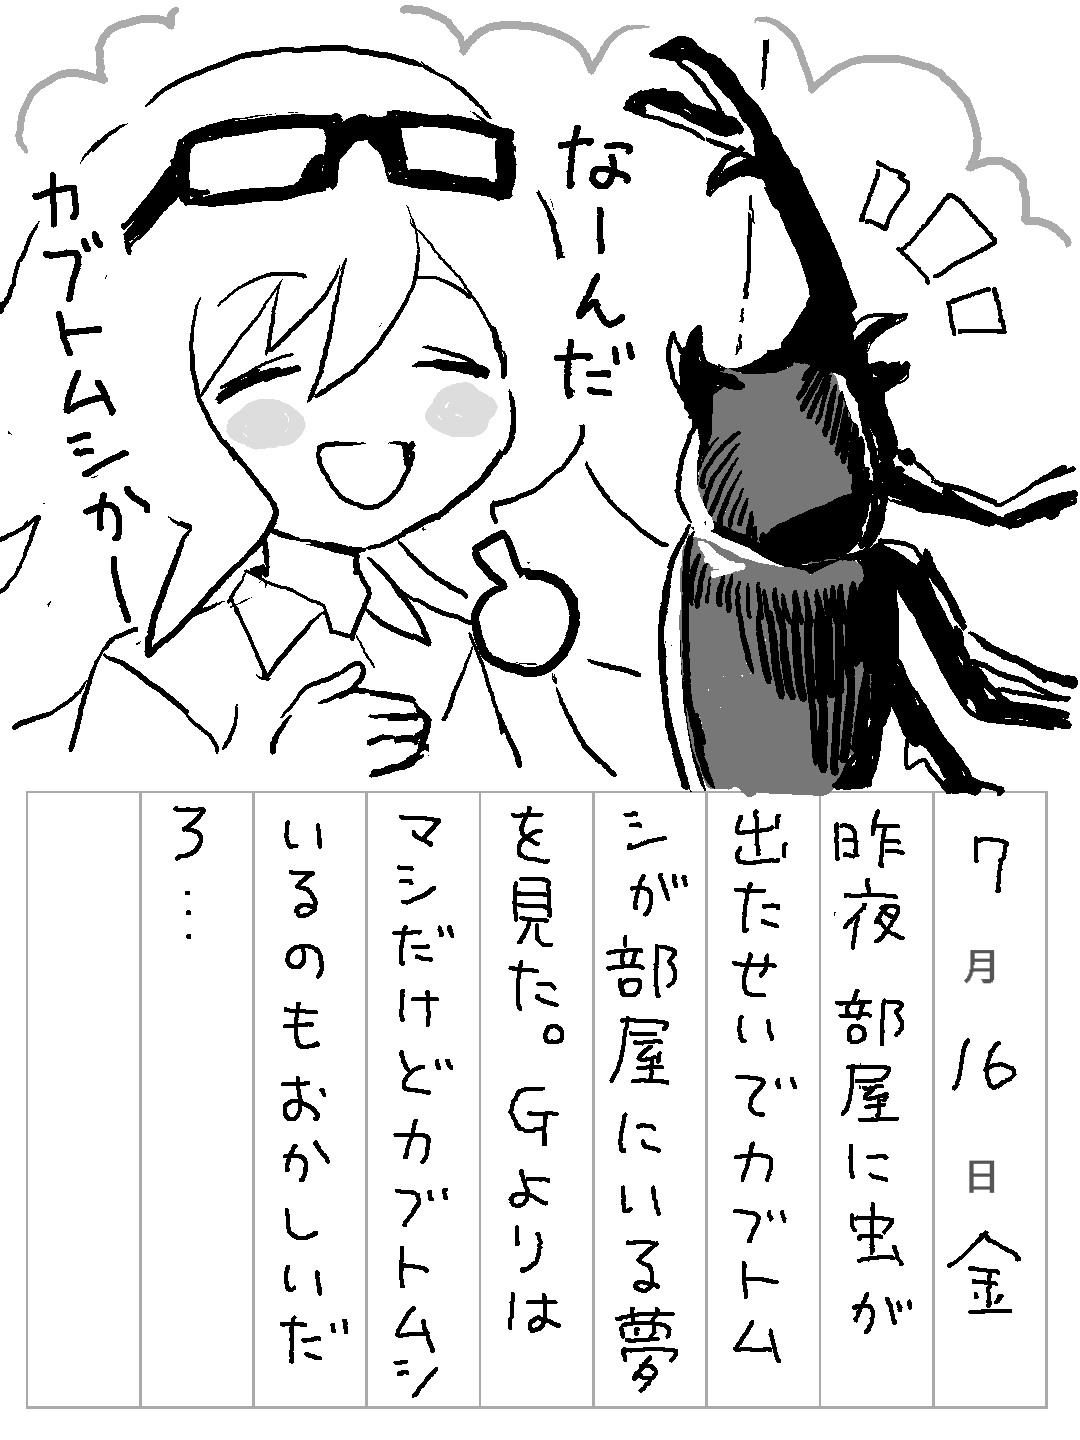 なーんだ
カブトムシかー
7月16日金
昨夜部屋に虫が
出たせいでカブトム
シが部屋にいる夢
を見た。Gよりは
マシだけどカブトムシ
いるのもおかしいだ
ろ…